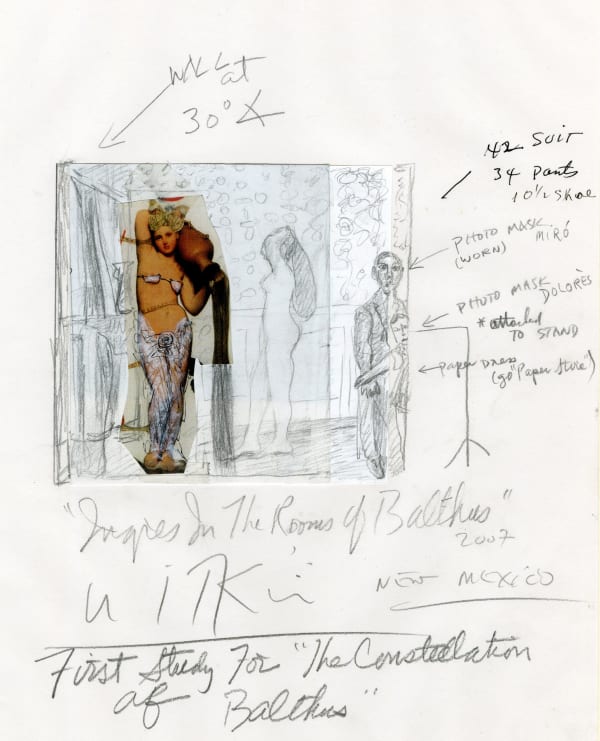 WALL at
30°
42 Suit
34 Pants
10½ Shoe
PHOTO MASK MIRÓ
(WORN)
PHOTO MASK DOLORÈS
* attached
TO STAND
PAPER DRESS
(go "Paper Store")
"Ingres In The Rooms of Balthus"
2007
WITKIN
NEW MEXICO
First Study For "The Constellation
of
Balthus"